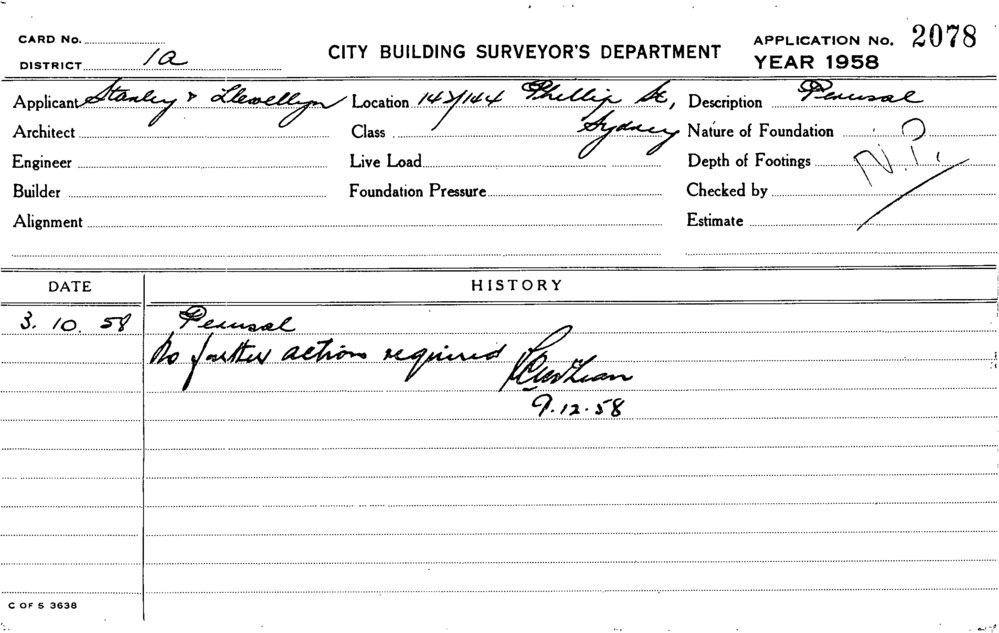 CARD No.
DISTRICT 1a
CITY BUILDING SURVEYOR'S DEPARTMENT
APPLICATION No. 2078
YEAR 1958
Applicant Stanley & Llewellyn Location 142/144 Phillip St, Description Perusal
Architect Class Sydney Nature of Foundation
Engineer Live Load Depth of Footings N.P.
Builder Foundation Pressure Checked by
Alignment Estimate
DATE HISTORY
3. 10. 58 Perusal
No further action required
9.12.58
C OF S 3638